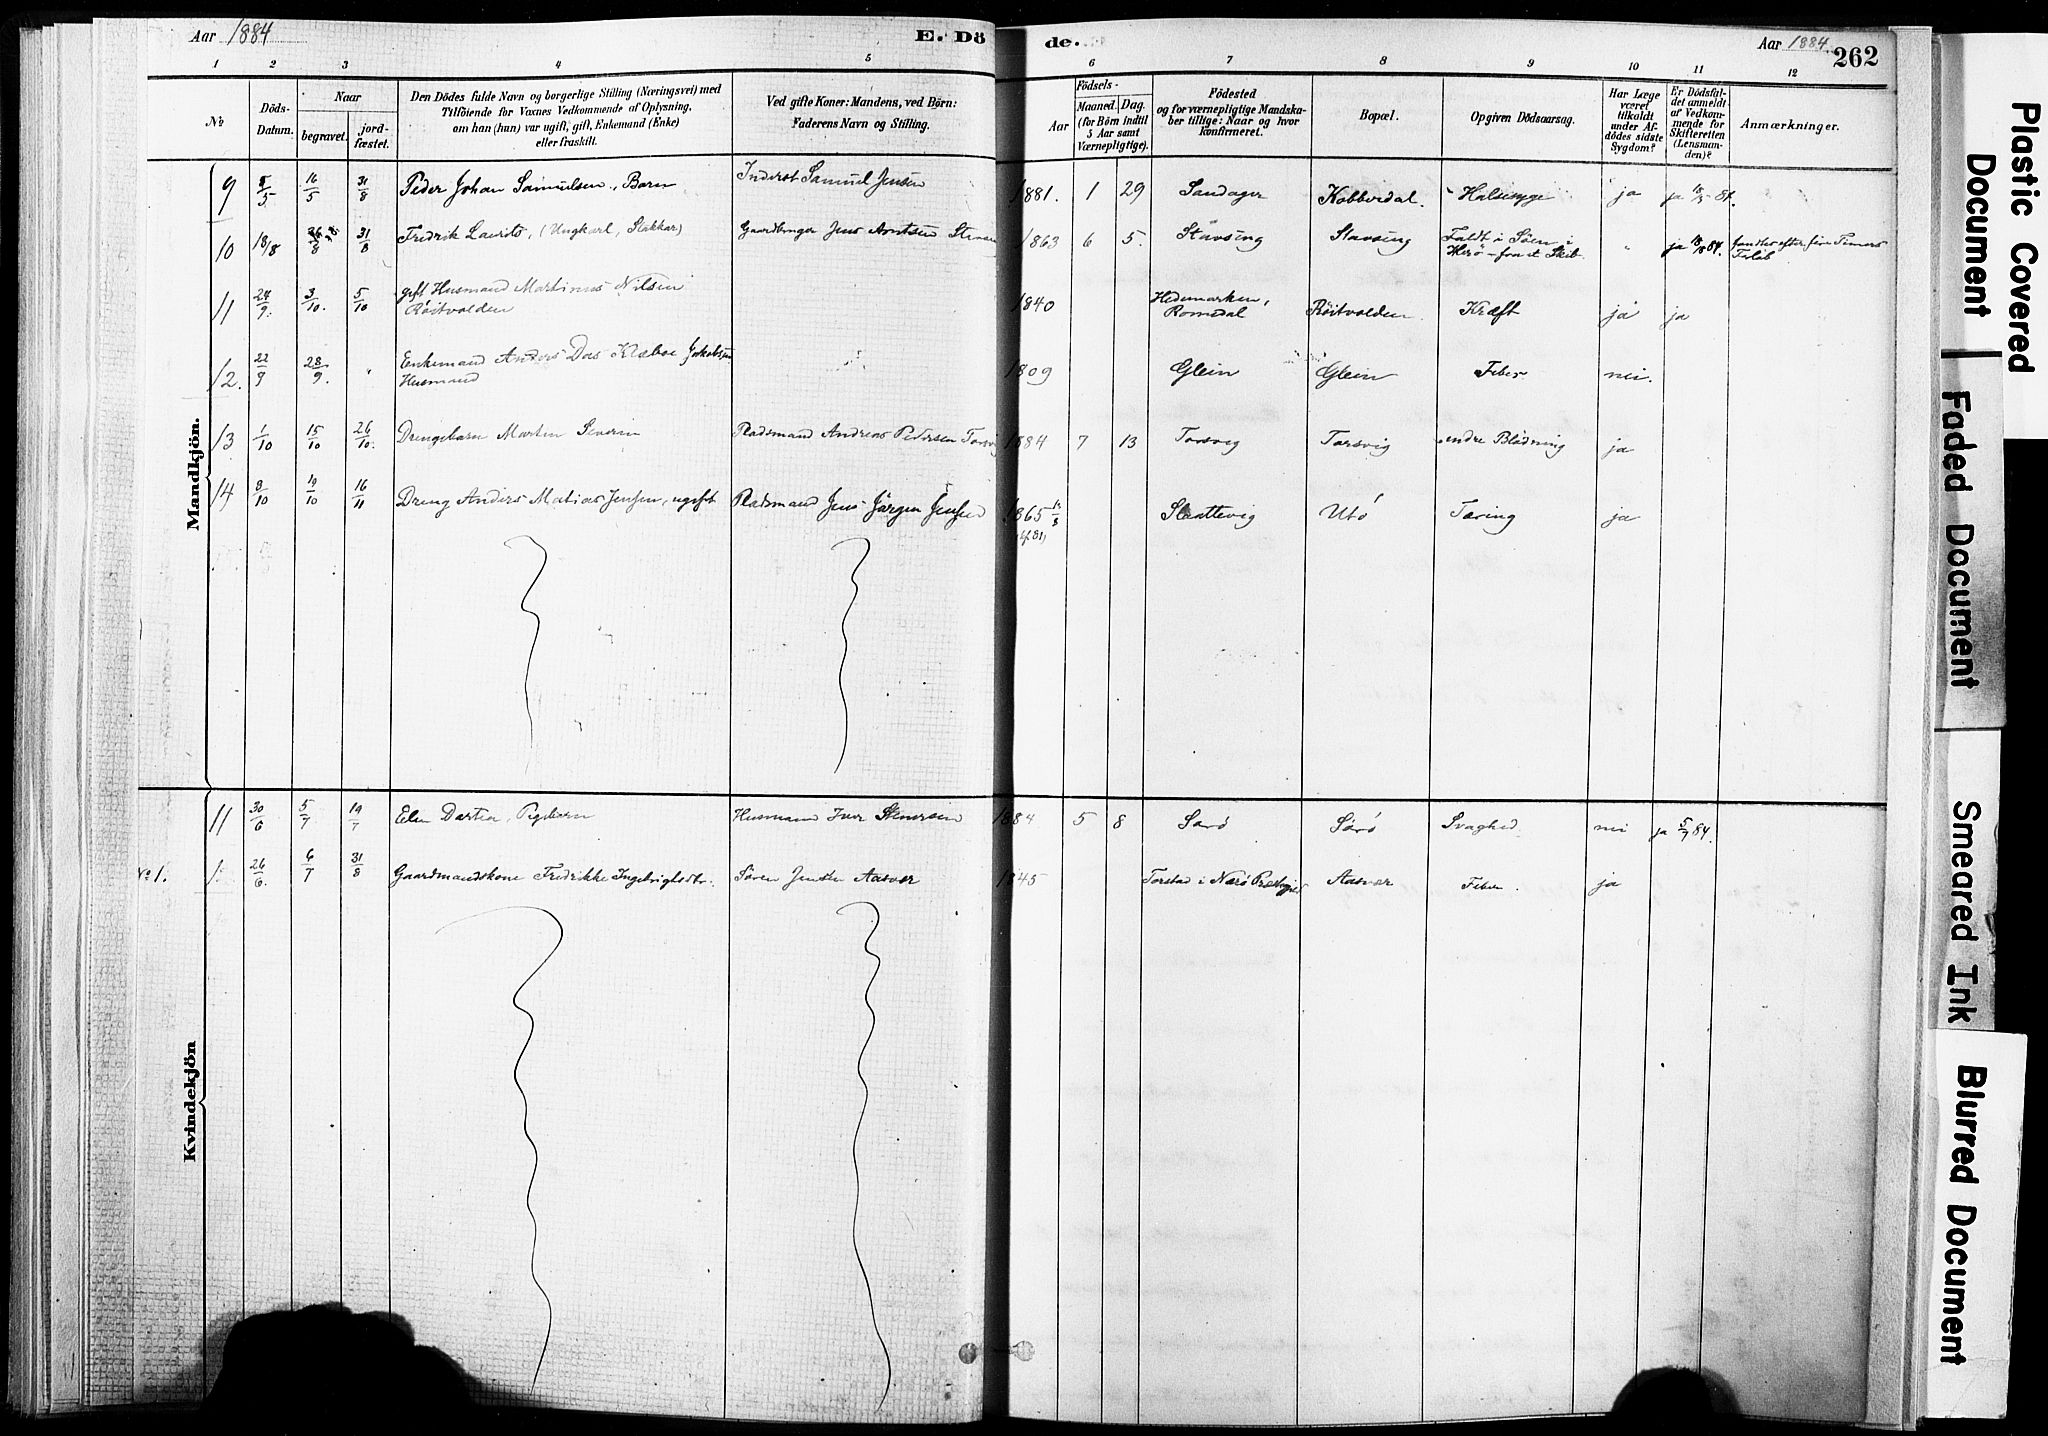 Aar 1884
E. Dö
de.
Aar 1884
262
1 2 3 4 5 6 7 8 9 10 11 12
No
Döds-
Datum.
Naar
begravet.
jord-
fæstet.
Den Dödes fulde Navn og borgerlige Stilling (Næringsvei) med
Tilföiende for Voxnes Vedkommende af Oplysning,
om han (hun) var ugift, gift, Enkemand (Enke)
eller fraskilt.
Ved gifte Koner: Mandens, ved Börn:
Faderens Navn og Stilling.
Födsels-
Aar
Maaned.
Dag.
(for Börn indtil
5 Aar samt
Værnepligtige).
Födested
og for værnepligtige Mandska-
ber tillige: Naar og hvor
konfirmeret.
Bopæl.
Opgiven Dödsaarsag.
Har Læge
været
tilkaldt
under Af-
dödes sidste
Sygdom?
Er Dödsfal-
det anmeldt
af Vedkom-
mende for
Skifteretten
(Lensman-
den)?
Anmærkninger.
Mandkjön.
9 5/5 16/5 31/8 Peder Johan Samuelsen, Barn Inderst Samuel Jensen 1881. 1 29 Sandager Kobberdal. Halssyge ja ja 84.
10 18/8 31/8 Fredrik Laurits, (Ungkarl, Stakkar) Gaardbruger Jens Arntsen 1863 6 5. Stavseng Stavseng Faldt i Söen i
Herö - fra et Skib " ja 18/8 84. Fandtes efter fire Timers
Forløb
11 24/9. 3/10. 5/10 gift Husmand Martinus Nilsen
Röitvolden 1840 Hedemarken,
Romedal Röitvolden Kræft ja ja
12. 22/9 28/9. " Enkemand Anders Das Klæboe Jakobsen
Husmand 1809 Glein Glein Feber nei.
13 1/10 15/10 26/10. Drengebarn Martin Severin Pladsmand Andreas Pedersen Torsvig 1884 7 13 Torsvig Torsvig indre Blödning ja
14 8/10 19/10 16/11 Dreng Anders Matias Jensen, ugift Pladsmand Jens Jörgen Jensen 1865 Slattevig Utö Tæring ja
Kvindekjön
11 30/6 5/7 19/7 Elen Dortea, Pigebarn Husmand Iver Stenersen 1884 5 8 Sörö Sörö Svaghed nei ja 5/7 84.
No 1. 26/6. 6/7 31/8 Gaardmandskone Fredrikke Ingebrigtsdtr. Sören Jensen Aasvær 1845 Torstad i Nærö Præstegjeld Aasvær Feber. ja
Plastic Covered
Document
Faded Document
Smeared Ink
Blurred Document